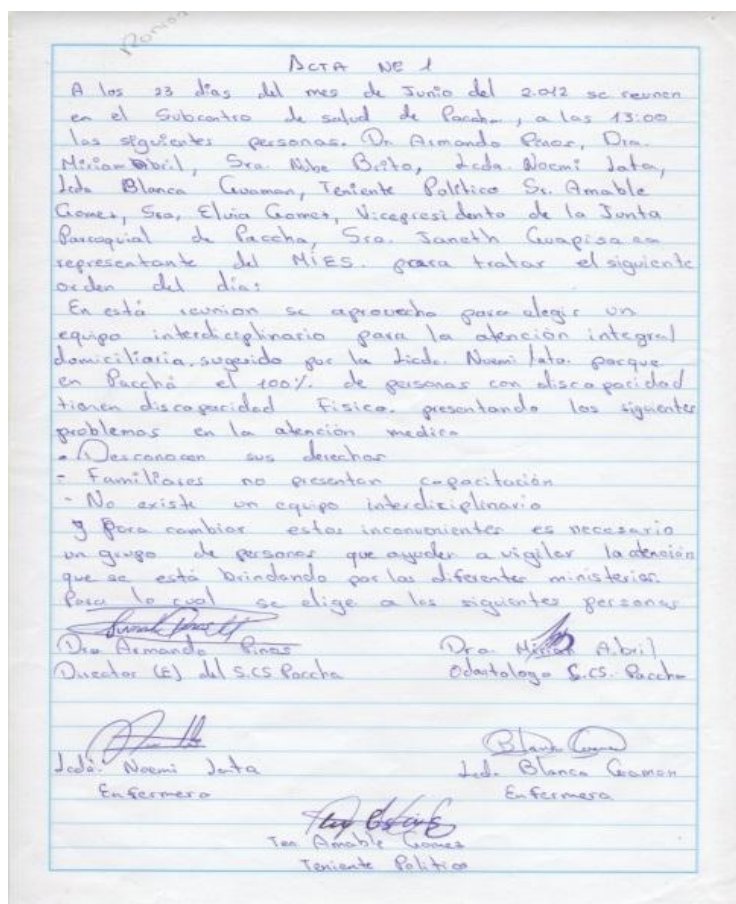 ACTA NE 1
A los 23 días del mes de Junio del 2.012 se reunen
en el Subcentro de salud de Paccha, a las 13:00
las siguientes personas. Dr Armando Pinos, Dra.
Miriam Abril, Sra. Nube Brito, Lcda. Noemi Jata,
Lcda Blanca Guaman, Teniente Político Sr. Amable
Gomez, Sra, Elvia Gomez, Vicepresidenta de la Junta
Parroquial de Paccha, Sra. Janeth Guapisaca
representante del MIES. para tratar el siguiente
orden del día:
En está reunion se aprovecho para elegir un
equipo interdiciplinario para la atención integral
domiciliaria, sugerido por la Licda. Noemi Jata. porque
en Pacchá el 100% de personas con discapacidad
tienen discapacidad Fisica. presentando los siguientes
problemas en la atención medica
- Desconocen sus derechos
- Familiares no presentan capacitación
- No existe un equipo interdiciplinario
y para cambiar estos inconvenientes es necesario
un grupo de personas que ayuden a vigilar la atención
que se está brindando por los diferentes ministerios.
Para lo cual se elige a las siguientes personas
Armando Pinos
Dra. Miriam Abril
Director (E) del S.CS Paccha
Odontologa S.CS. Paccha
Blanca Guaman
Lcda. Noemi Jata
Lcda. Blanca Guaman
Enfermera
Enfermera
Ten Amable Gomez
Teniente Politico